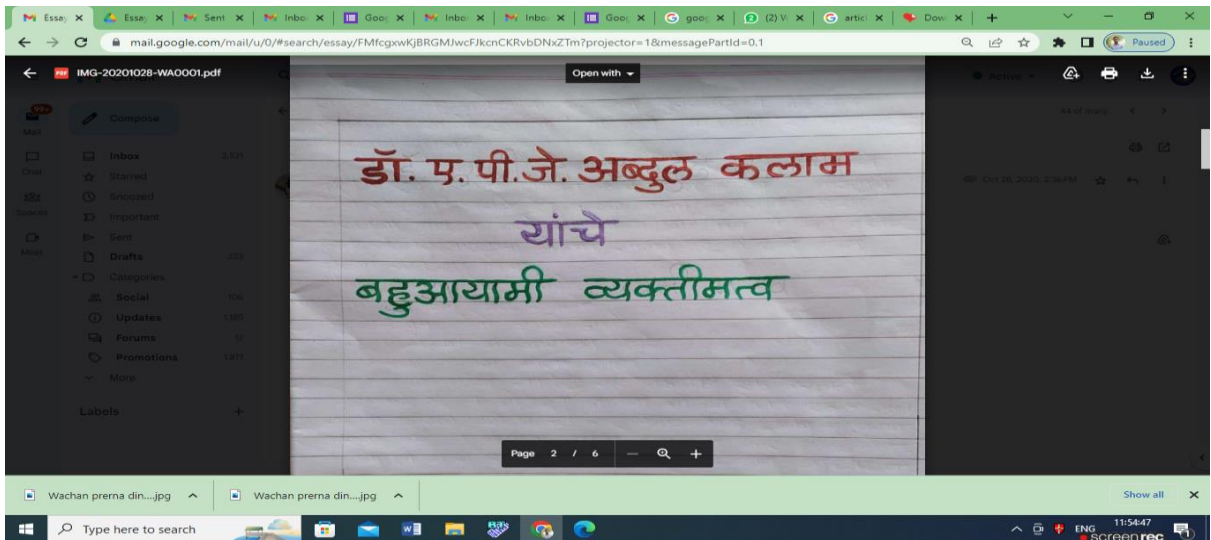 Essay
Essay
Sent
Inbo
Goog
Inbo
Inbo
Goog
goog
(2) W
articl
Dow
mail.google.com/mail/u/0/#search/essay/FMfcgxwKjBRGMJwcFJkcnCKRvbDNxZTm?projector=1&messagePartId=0.1
Paused
PDF IMG-20201028-WA0001.pdf
Open with
Active
Mail
Compose
Chat
Inbox 2,521
Starred
Spaces
Snoozed
Important
Meet
Sent
Drafts
Categories
Social
Updates
Forums
Promotions
More
Labels
Oct 28, 2020, 2:36 PM
डॉ. ए. पी. जे. अब्दुल कलाम
यांचे
बहुआयामी व्यक्तीमत्व
Page 2 / 6
Wachan prerna din....jpg
Wachan prerna din....jpg
Show all
Type here to search
ENG
11:54:47
screenrec